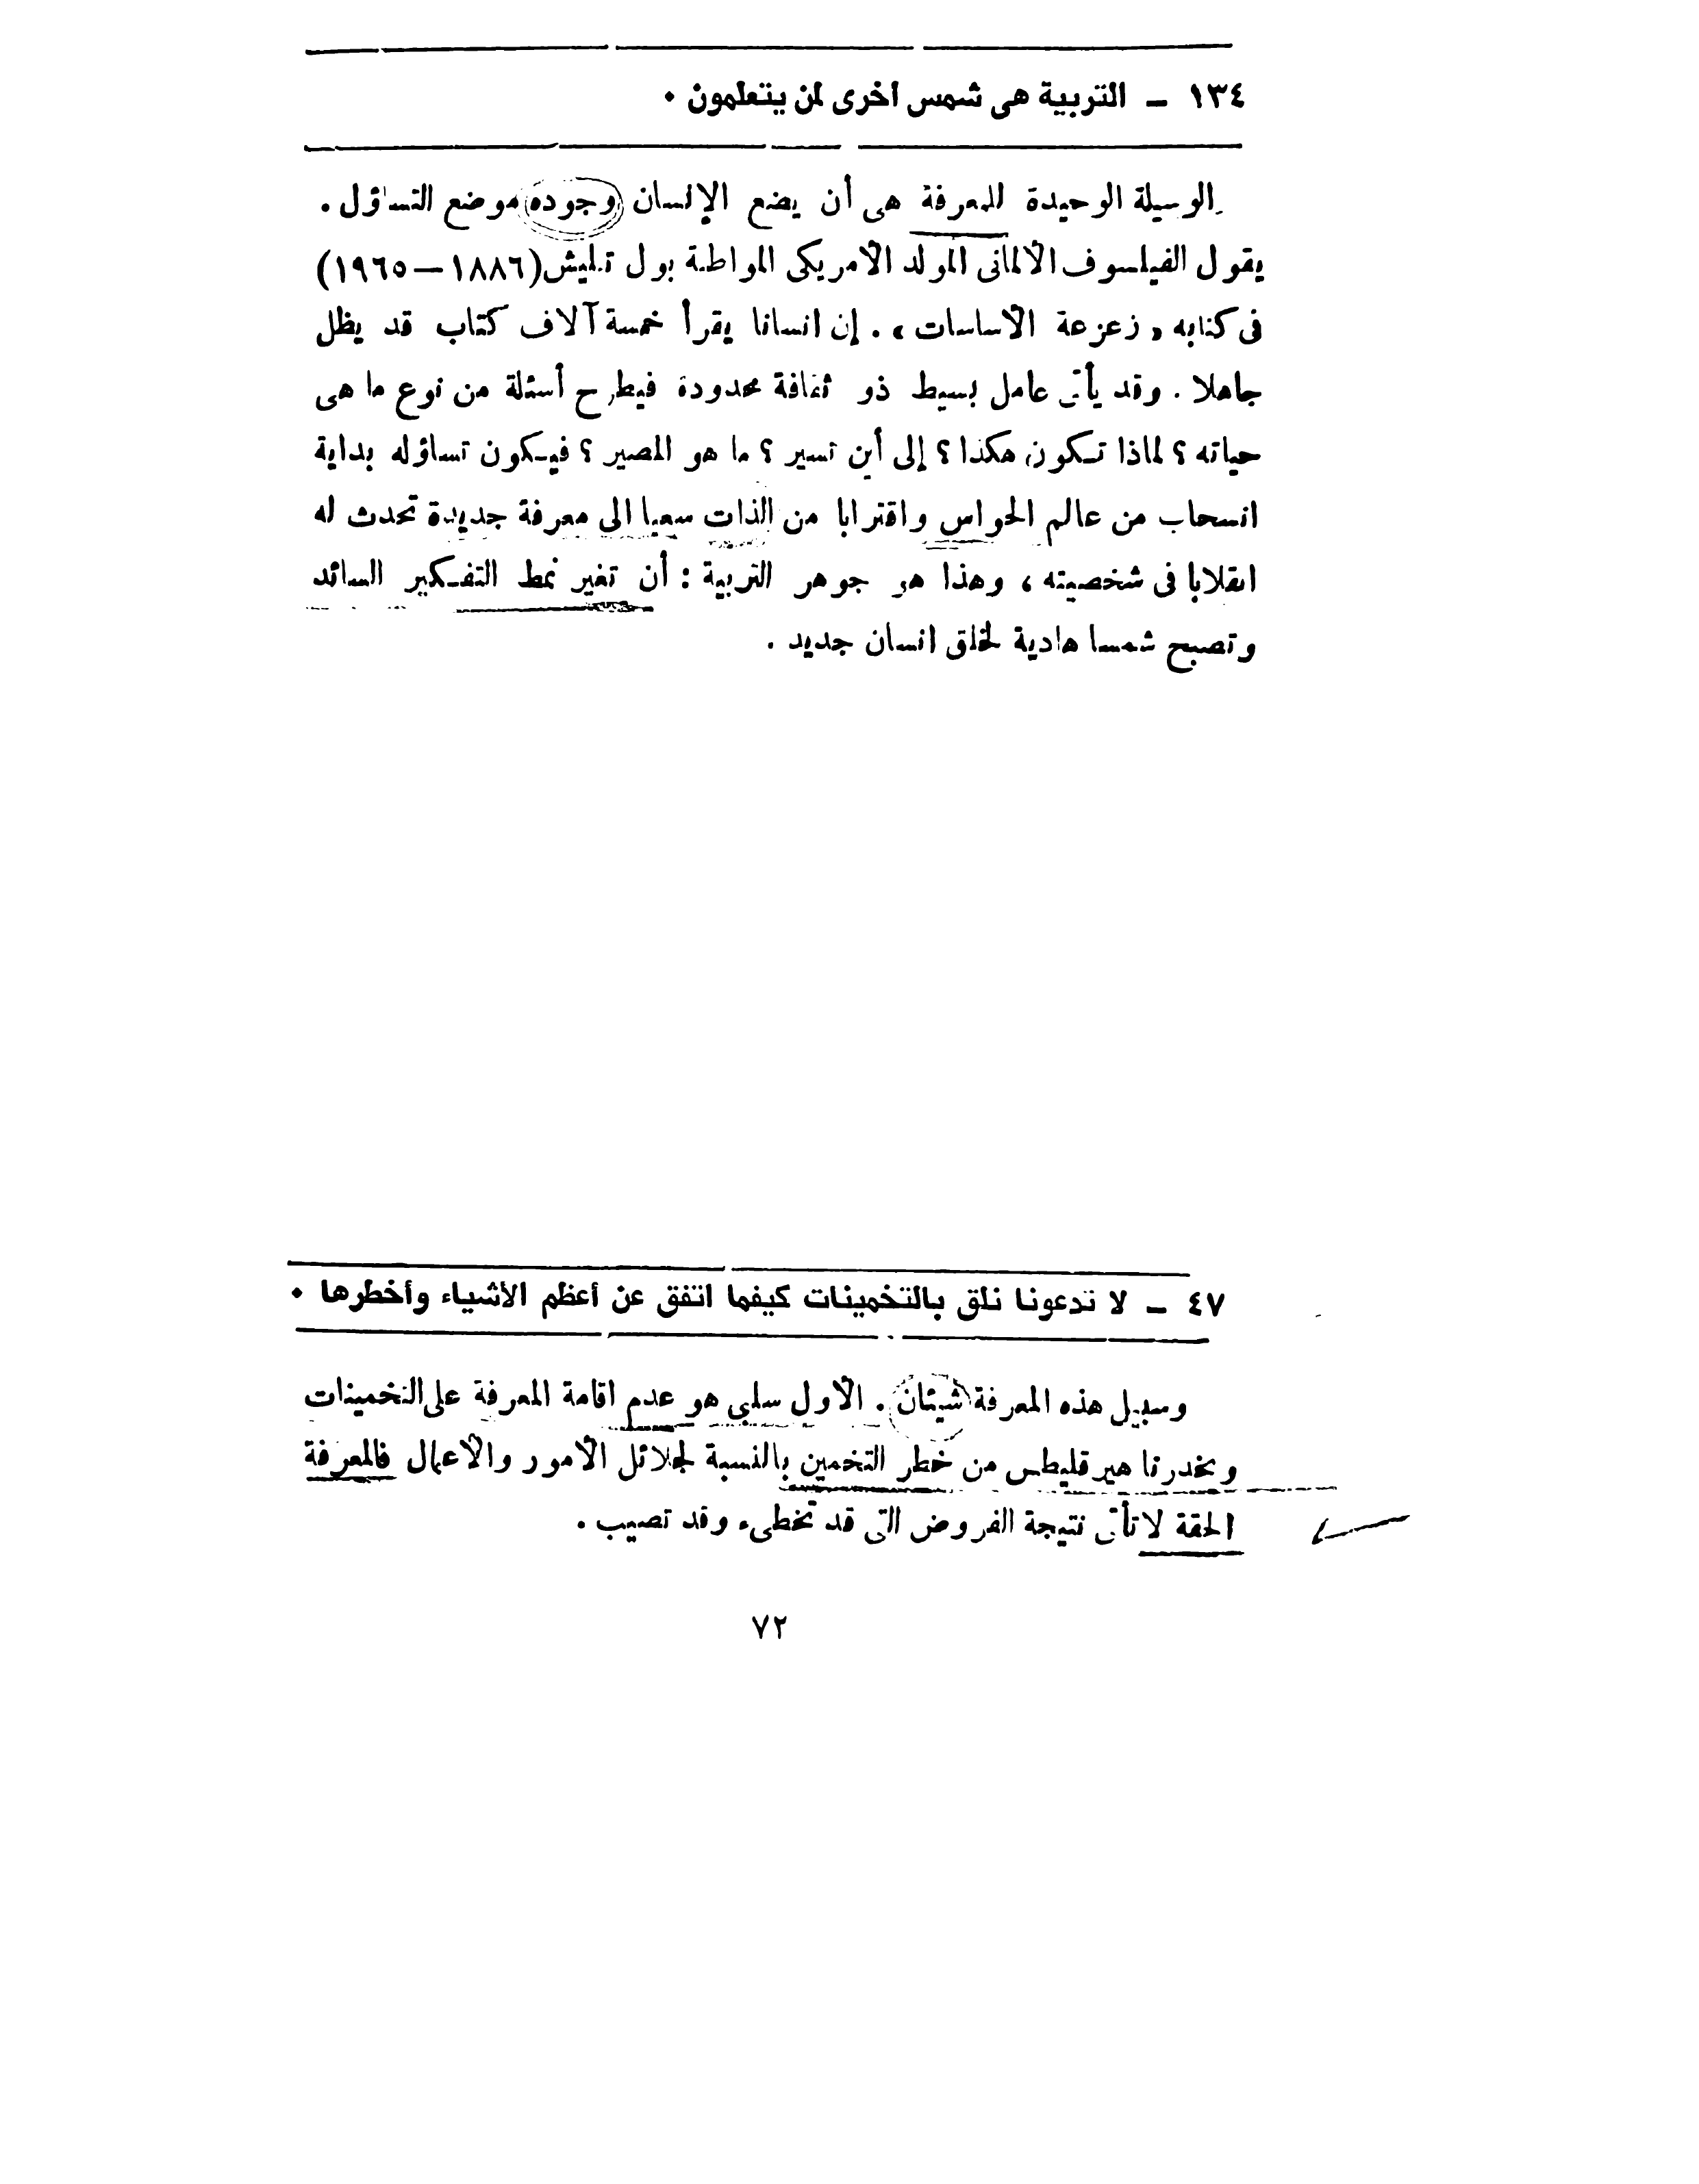 ١٣٤ – التربية هى شمس أخرى لمن يتعلمون ٠
الوسيلة الوحيدة للمعرفة هى أن يضع الإنسان وجوده موضع التساؤل .
يقول الفيلسوف الألمانى المولد الأمريكى المواطنة بول تليش (١٨٨٦ – ١٩٦٥)
فى كتابه « زعزعة الأساسات » . إن انسانا يقرأ خمسة آلاف كتاب قد يظل
جاهلا . وقد يأتى عامل بسيط ذو ثقافة محدودة فيطرح أسئلة من نوع ما هى
حياته ؟ لماذا تكون هكذا ؟ إلى أين تسير ؟ ما هو المصير ؟ فيكون تساؤله بداية
انسحاب من عالم الحواس واقترابا من الذات سعيا الى معرفة جديدة تحدث له
انقلابا فى شخصيته ، وهذا هو جوهر التربية : أن تغير نمط التفكير السائد
وتصبح شمسا هادية لخلق انسان جديد .
٤٧ – لا تدعونا نلق بالتخمينات كيفما اتفق عن أعظم الأشياء وأخطرها ٠
وسبيل هذه المعرفة شيئان . الأول سلبى هو عدم اقامة المعرفة على التخمينات
ويحذرنا هيرقليطس من خطر التخمين بالنسبة لجلائل الأمور والأعمال فالمعرفة
الحقة لا تأتى نتيجة الفروض التى قد تخطىء وقد تصيب .
٧٢